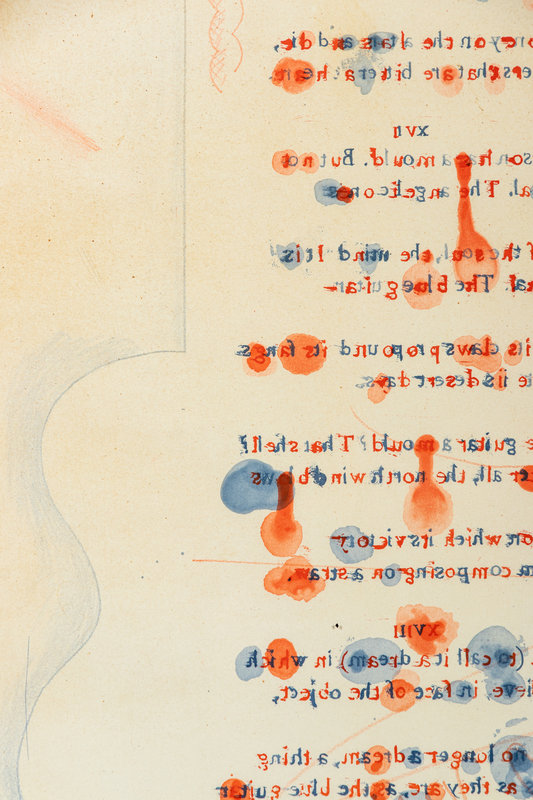 oney on the altars and die,
ers that are bitter at heart.
XVII
son has a mould. But not
al. The angelic ones
f the soul, the mind. It is
al. The blue guitar—
its claws propound, its fangs
e its desert days.
e guitar a mould? That shell?
er all, the north wind blows
on which its victory
m composing on a straw.
XVIII
(to call it a dream) in which
ieve, in face of the object,
no longer a dream, a thing
s as they are, as the blue guitar